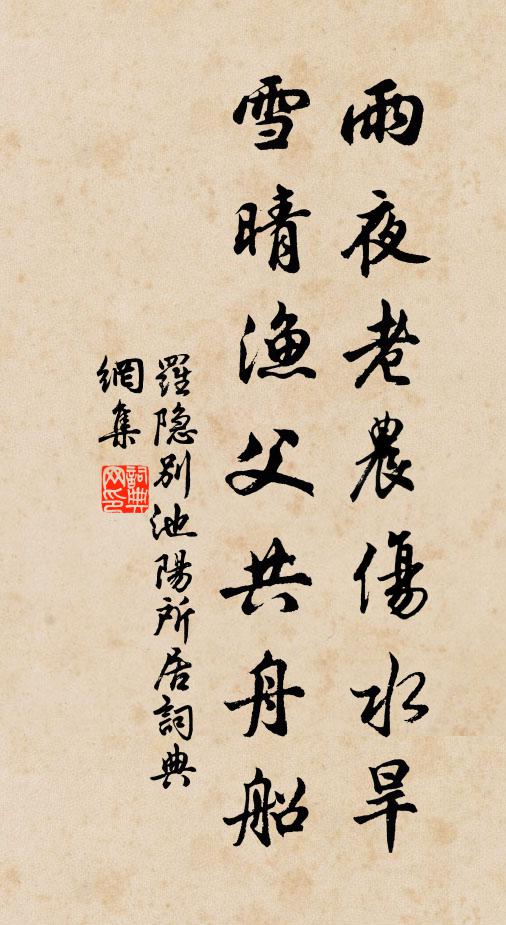 雨夜老農傷水旱
雪晴漁父共舟船
羅隐别池陽所居詞典
網集
詞典
网印